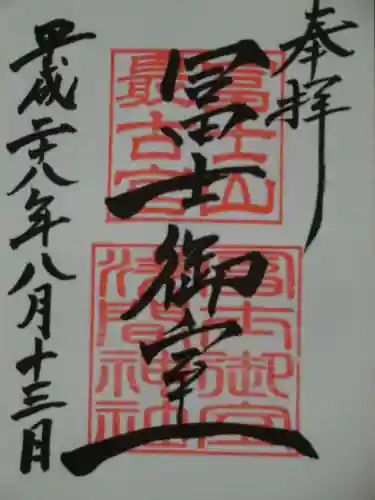 奉拝
冨士御室
富士山
最古宮
冨士御室
浅間神社
平成二十八年八月十三日